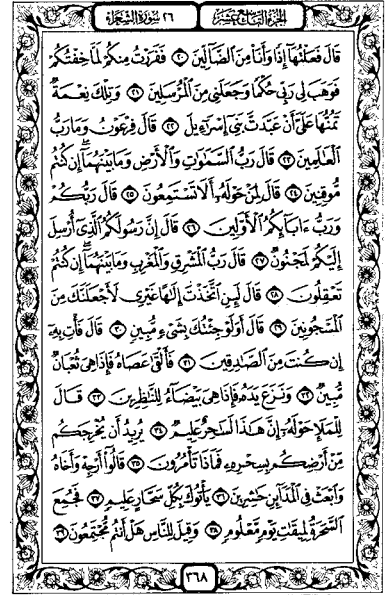 الجزء التاسع عشر ٢٦ سورة الشعراء
قَالَ فَعَلْتُهَا إِذًا وَأَنَا۠ مِنَ ٱلضَّآلِّينَ ٢٠ فَفَرَرْتُ مِنكُمْ لَمَّا خِفْتُكُمْ
فَوَهَبَ لِى رَبِّى حُكْمًا وَجَعَلَنِى مِنَ ٱلْمُرْسَلِينَ ٢١ وَتِلْكَ نِعْمَةٌ
تَمُنُّهَا عَلَىَّ أَنْ عَبَّدتَّ بَنِىٓ إِسْرَٰٓءِيلَ ٢٢ قَالَ فِرْعَوْنُ وَمَا رَبُّ
ٱلْعَٰلَمِينَ ٢٣ قَالَ رَبُّ ٱلسَّمَٰوَٰتِ وَٱلْأَرْضِ وَمَا بَيْنَهُمَآ إِن كُنتُم
مُّوقِنِينَ ٢٤ قَالَ لِمَنْ حَوْلَهُۥٓ أَلَا تَسْتَمِعُونَ ٢٥ قَالَ رَبُّكُمْ
وَرَبُّ ءَابَآئِكُمُ ٱلْأَوَّلِينَ ٢٦ قَالَ إِنَّ رَسُولَكُمُ ٱلَّذِىٓ أُرْسِلَ
إِلَيْكُمْ لَمَجْنُونٌ ٢٧ قَالَ رَبُّ ٱلْمَشْرِقِ وَٱلْمَغْرِبِ وَمَا بَيْنَهُمَآ إِن كُنتُمْ
تَعْقِلُونَ ٢٨ قَالَ لَئِنِ ٱتَّخَذْتَ إِلَٰهًا غَيْرِى لَأَجْعَلَنَّكَ مِنَ
ٱلْمَسْجُونِينَ ٢٩ قَالَ أَوَلَوْ جِئْتُكَ بِشَىْءٍ مُّبِينٍ ٣٠ قَالَ فَأْتِ بِهِۦٓ
إِن كُنتَ مِنَ ٱلصَّٰدِقِينَ ٣١ فَأَلْقَىٰ عَصَاهُ فَإِذَا هِىَ ثُعْبَانٌ
مُّبِينٌ ٣٢ وَنَزَعَ يَدَهُۥ فَإِذَا هِىَ بَيْضَآءُ لِلنَّٰظِرِينَ ٣٣ قَالَ
لِلْمَلَإِ حَوْلَهُۥٓ إِنَّ هَٰذَا لَسَٰحِرٌ عَلِيمٌ ٣٤ يُرِيدُ أَن يُخْرِجَكُم
مِّنْ أَرْضِكُم بِسِحْرِهِۦ فَمَاذَا تَأْمُرُونَ ٣٥ قَالُوٓا۟ أَرْجِهْ وَأَخَاهُ
وَٱبْعَثْ فِى ٱلْمَدَآئِنِ حَٰشِرِينَ ٣٦ يَأْتُوكَ بِكُلِّ سَحَّارٍ عَلِيمٍ ٣٧ فَجُمِعَ
ٱلسَّحَرَةُ لِمِيقَٰتِ يَوْمٍ مَّعْلُومٍ ٣٨ وَقِيلَ لِلنَّاسِ هَلْ أَنتُم مُّجْتَمِعُونَ ٣٩
٣٦٨